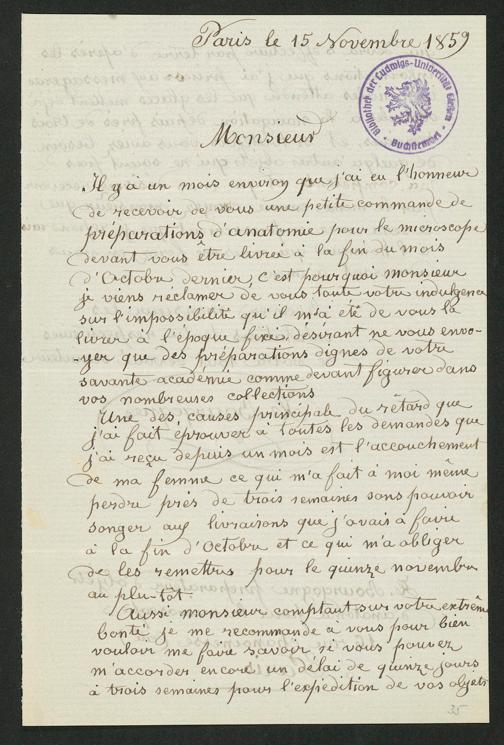 Paris le 15 Novembre 1859
Bibliothek der Ludwigs-Universität Giessen
Monsieur
Il y a un mois environ que j'ai eu l'honneur
de recevoir de vous une petite commande de
préparations d'anatomie pour le microscope
devant vous être livrée à la fin du mois
d'Octobre dernier, c'est pourquoi monsieur
je viens réclamer de vous toute votre indulgence
sur l'impossibilité qu'il m'a été de vous la
livrer à l'époque fixé, désirant ne vous envo-
-yer que des préparations dignes de votre
savante académie comme devant figurer dans
vos nombreuses collections
Une des causes principale du retard que
j'ai fait éprouver à toutes les demandes que
j'ai reçu depuis un mois est l'accouchement
de ma femme ce qui m'a fait à moi même
perdre près de trois semaines sans pouvoir
songer aux livraisons que j'avais à faire
à la fin d'Octobre et ce qui m'a obliger
de les remettre pour le quinze novembre
au plu-tôt.
Aussi monsieur comptant sur votre extrême
bonté je me recommande a vous pour bien
vouloir me faire savoir si vous pouvez
m'accorder encore un délai de quinze jours
à trois semaines pour l'expédition de vos objets
35